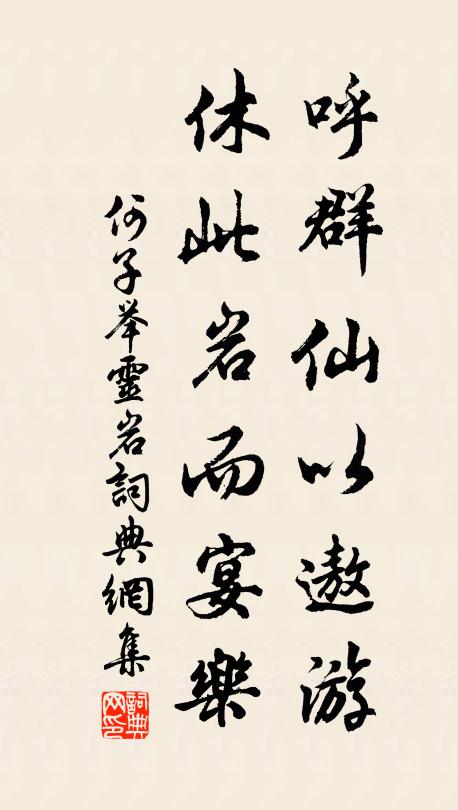 呼群仙以遨游
休此岩而宴樂
何子举靈岩詞典網集
詞典
网印